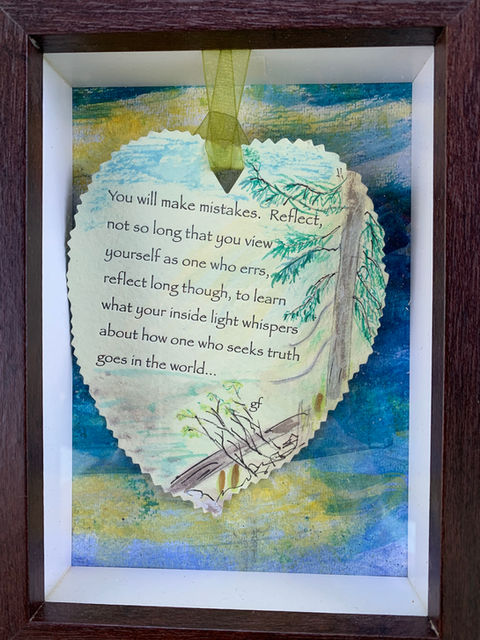 You will make mistakes. Reflect,
not so long that you view
yourself as one who errs,
reflect long though, to learn
what your inside light whispers
about how one who seeks truth
goes in the world...
gf